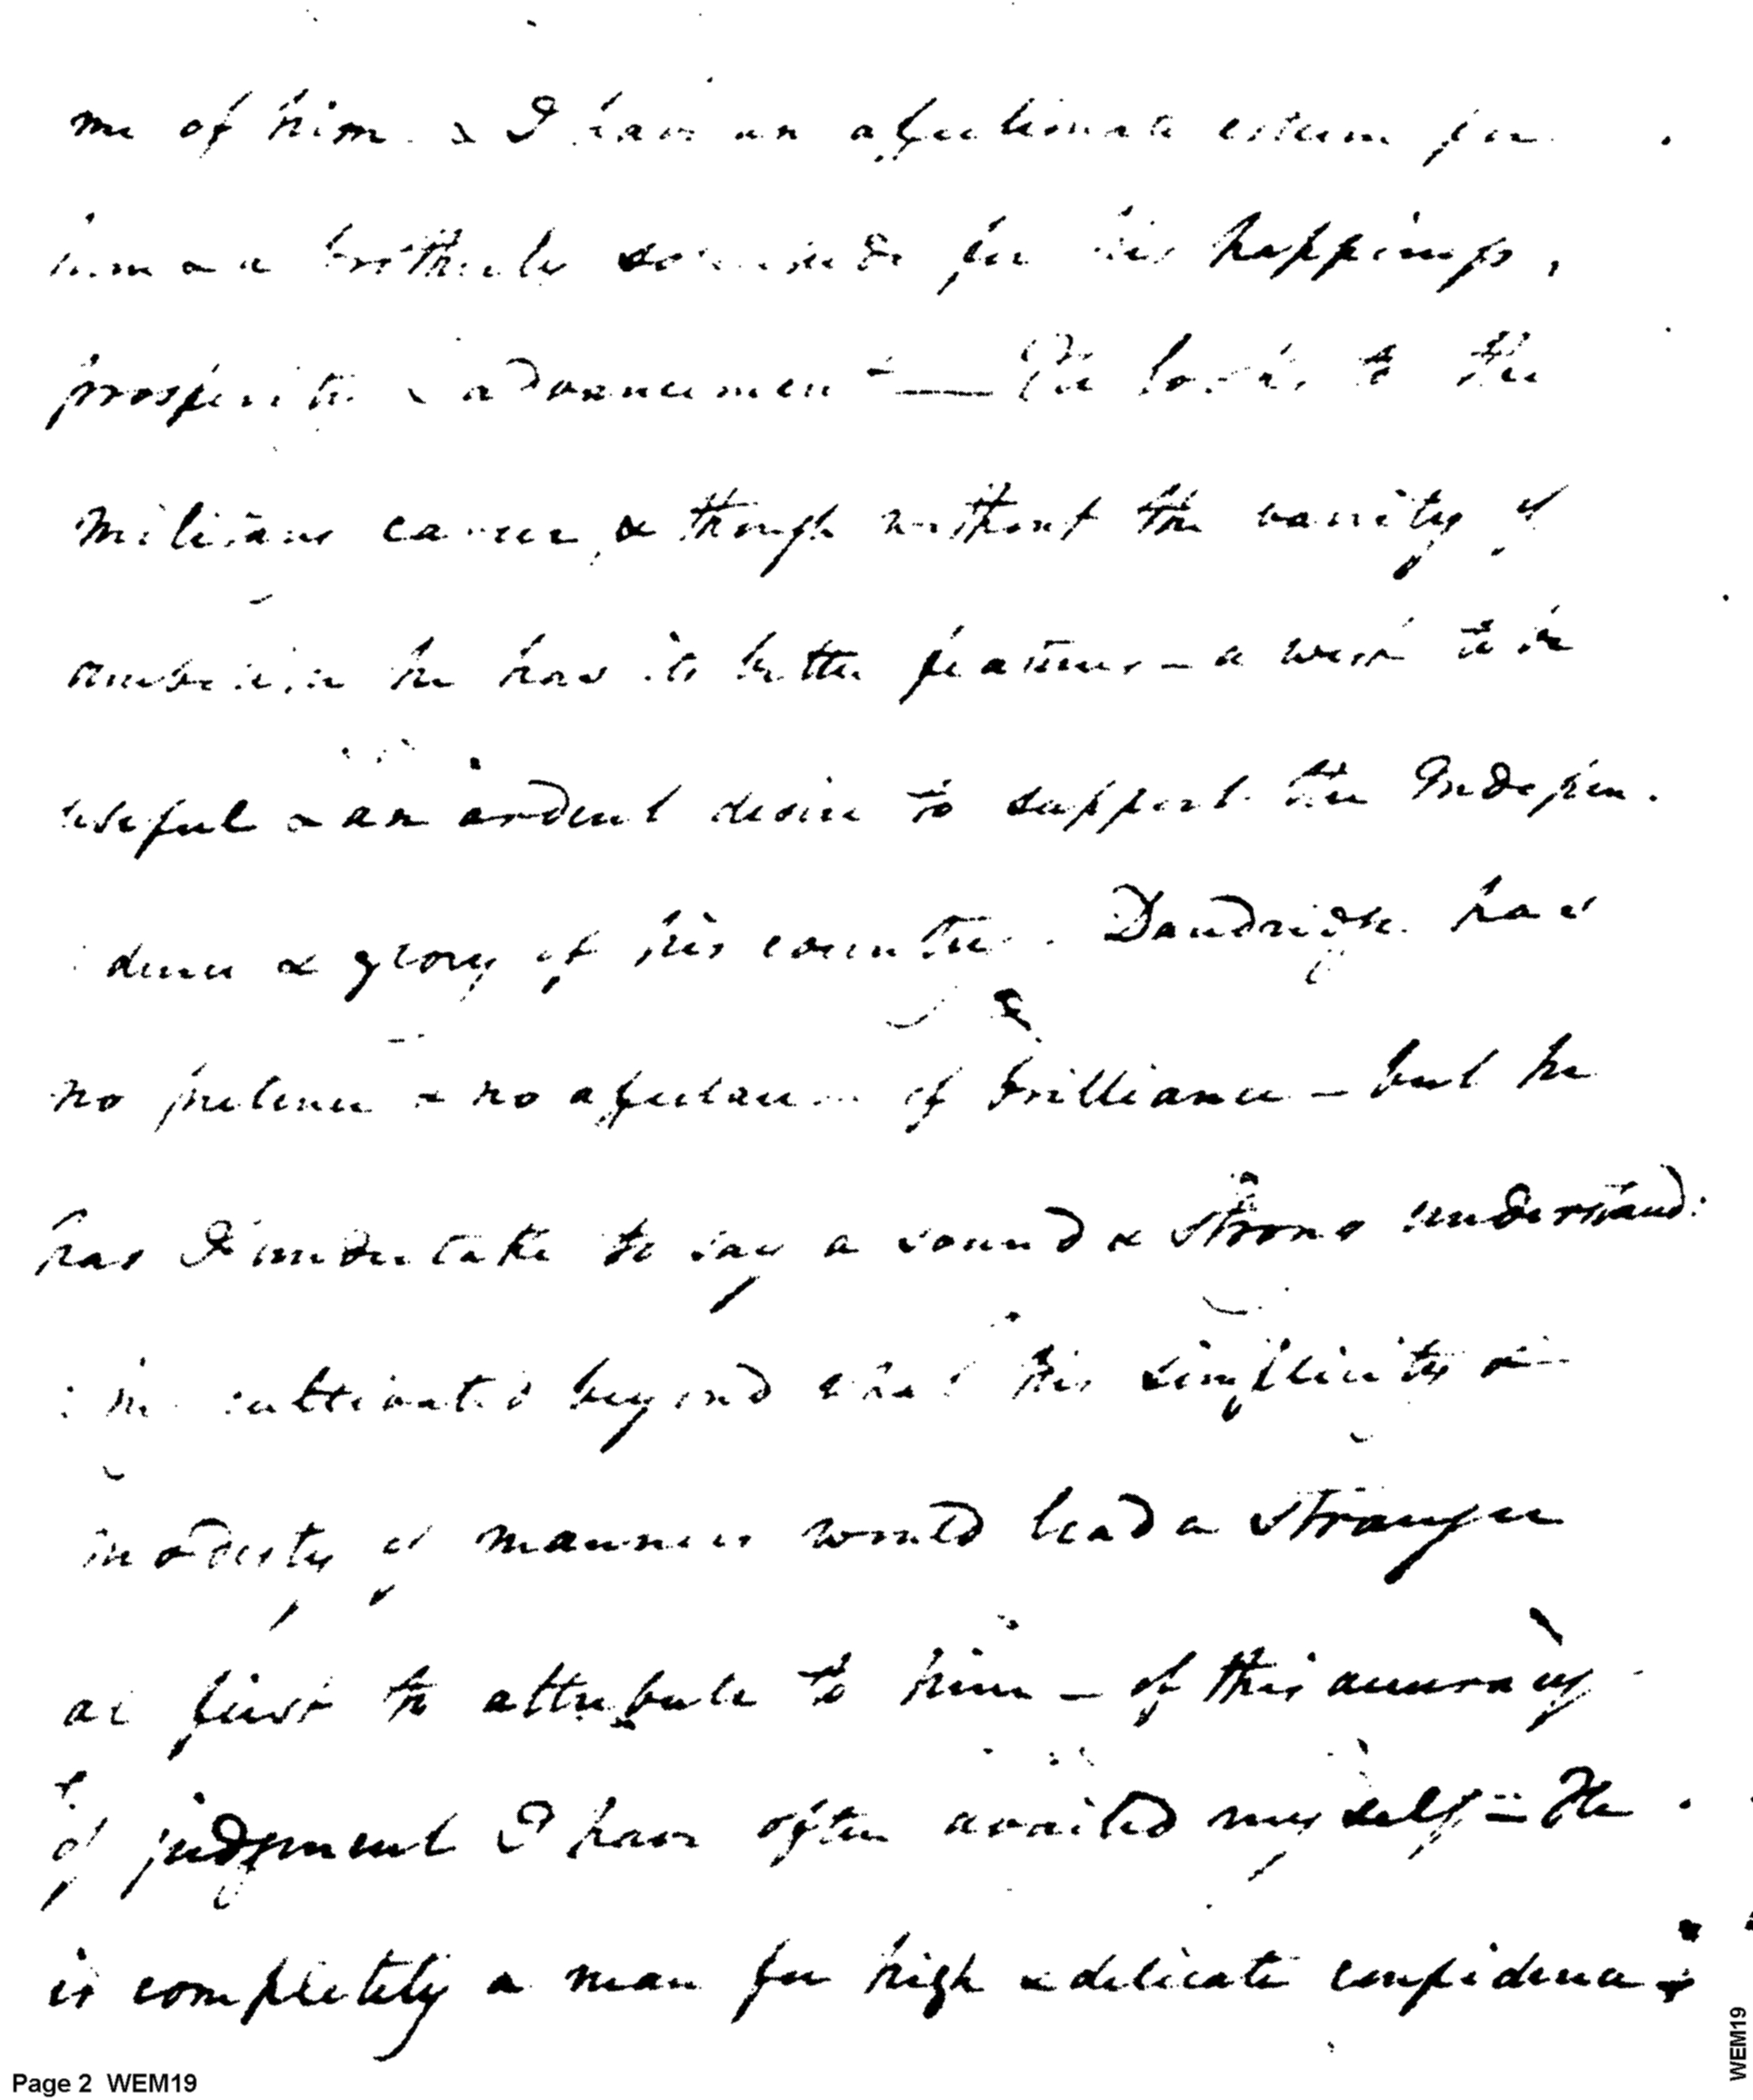 me of him & I have an affectionate esteem for
him & a brotherly solicitude for his happiness,
prosperity & advancement — He looks to the
military career, & though without the vanity of
ambition he has its better features – a wish to be
useful & an ardent desire to support the Indepen-
dence & glory of his country. Dandridge has
no pretence & no affectation of brilliance – but he
has I undertake to say a sound & strong understand:
:ing cultivated beyond what his simplicity &
modesty of manners would lead a stranger
at first to attribute to him – of this accuracy
of judgment I have often availed myself = He
is completely a man for high & delicate confidence
Page 2 WEM19
WEM19